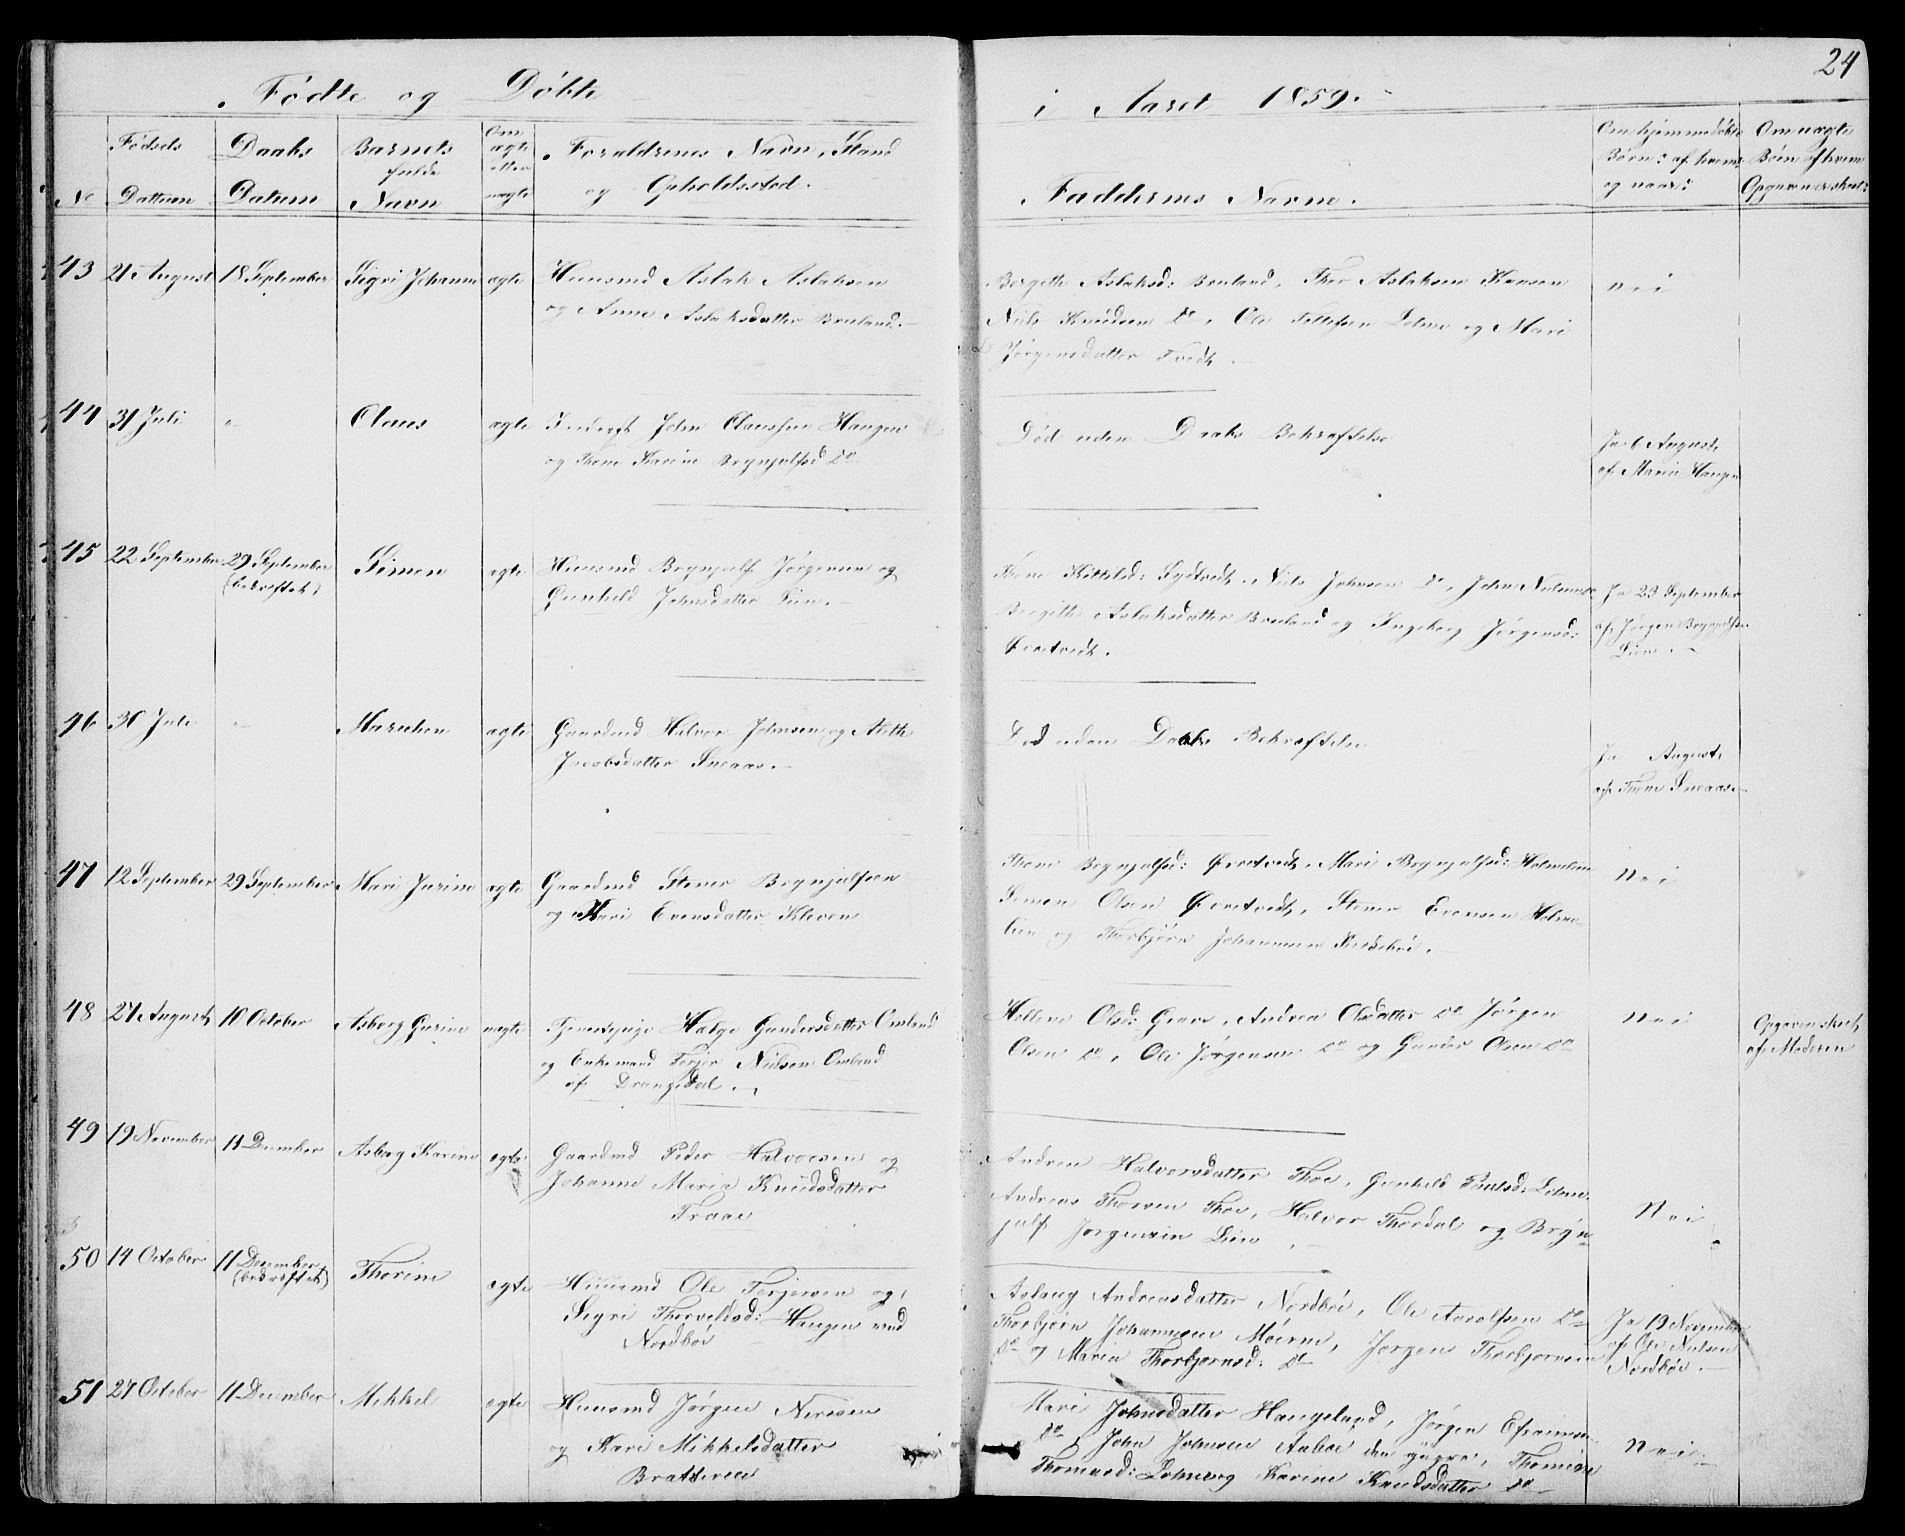 24
Fødte og Døbte
i Aaret 1859.
No
Fødsels Dattum
Daabs Datum
Barnets fulde Navn
Om ægte eller uægte
Forældrenes Navn, Stand og Opholdssted.
Faddernes Navne.
Om hjemmedøbte Børn: af hvem og naar:
Om uægte Børn af hvem Opgaven er skeet:
43 21 August 18 September Sigri Johanne ægte Huusmd Aslak Aslaksen
og Anne Aslaksdatter Bruland.
Bergith Aslaksd: Bruland, Thor Aslaksen
Niels Knudsen Do, Ole Tellefsen Lohne og Mari
Jørgensdatter Tvedt.
nei
44 31 Juli " Olaus ægte John Olaussen Haugen
og Thone Karine Brynjulfsd Do
Død uden Daabs Bekræftelse
Ja 6 August
af Maria Haugen
45 22 September 29 September (bekræftet) Simon ægte Huusmd Brynjulf Jørgensen og
Gunhild Johnsdatter Liin.
Thone Kittilsd: Sydtvedt, Niels Johnsen Do, John Nielsen Do
Bergith Aslaksdatter Bruland og Ingeborg Jørgensd:
Øvretvedt.
Ja 23 September
af Jørgen Brynjulfsen
Lien.
46 30 Juli " Marichen ægte Gaardmd Halvor Johnsen og Aleth
Jacobsdatter Sneaas.
Død uden Daabs Bekræftelse
Ja August
af Thone Sneaas.
47 12 September 29 September Mari Jurine ægte Gaardmd Stener Brynjulfsen
og Kari Evensdatter Kleven
Thone Brynjulfsd: Øvretvedt, Mari Brynjulfsd: Holmlien
Simon Olsen Øvretvedt, Stener Evensen Holm-
lien og Thorbjørn Johannesen
nei
48 27 August 10 October Asborg Gurine uægte Tjenestepige Helge Gundersdatter Omland
og Enkemand Terjer Nielsen Omland
af Drangedal.
Hellene Olsd: Grave, Andrea Olsdatter Do Jørgen
Olsen Do, Ole Jørgensen Do og Gunder Olsen Do
nei
Opgaven skeet
af Moderen
49 19 November 11 December Asborg Karine ægte Gaardmd Peder Halvorsen og
Johanne Maria Knudsdatter
Traae
Andrea Halvorsdatter Thoe, Gunhild Paulsd: Lohne
Andreas Thorsen Thoe, Halvor Thordal og Bryn-
julf Jørgensen Lien.
nei
50 14 October 11 December (bekræftet) Thorine ægte Huusmd Ole Terjersen og
Sigri Thorvildsd: Haugen ved
Nordbøe
Aslaug Andreasdatter Nordbøe, Ole Aarolfsen Do
Thorbjørn Johannesen Moerne, Jørgen Thorbjørnsen
Do og Maria Thorbjørnsd: Do
Ja 19 November
af Ole Nielsen
Nordbøe.
51 27 October 11 December Mikkel ægte Huusmd Jørgen Nersen
og Kari Mikkelsdatter
Bratterud
Mari Johnsdatter Haugeland, Jørgen Efraimsen
Do, John Johnsen Aaboe den yngre, Thomine
Thomasd: Lohne og Karine Knudsdatter Do
nei